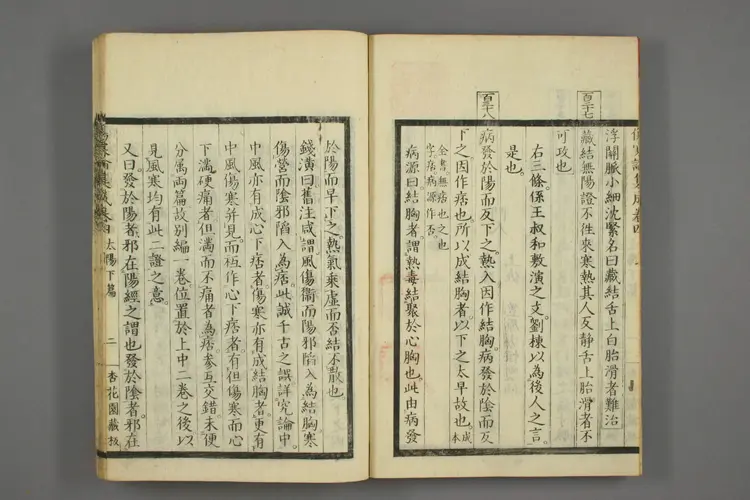 傷寒論集成卷四
浮關脈小細沈緊名曰藏結舌上白胎滑者難治
百三十七
藏結無陽證不往來寒熱其人反靜舌上胎滑者不
可攻也
右三條係王叔和敷演之文劉棟以為後人之言
是也
百三十八
病發於陽而反下之熱入因作結胸病發於陰而反
下之因作痞也所以成結胸者以下之太早故也成本
全書無痞也之也
字痞病源作否
病源曰結胸者謂熱毒結聚於心胸也此由病發
於陽而早下之熱氣乘虛而否結不散也
錢潢曰舊注咸謂風傷衞而陽邪陷入為結胸寒
傷營而陰邪陷入為痞此誠千古之誤詳究論中
中風亦有成心下痞者傷寒亦有成結胸者更有
中風傷寒並見而亙作心下痞者有但傷寒而心
下滿硬痛者但滿而不痛者為痞參互交錯未便
分屬兩篇故別編一卷位置於上中二卷之後以
見風寒均有此二證之意
又曰發於陽者邪在陽經之謂也發於陰者邪在
太陽下篇
二
杏花園藏板